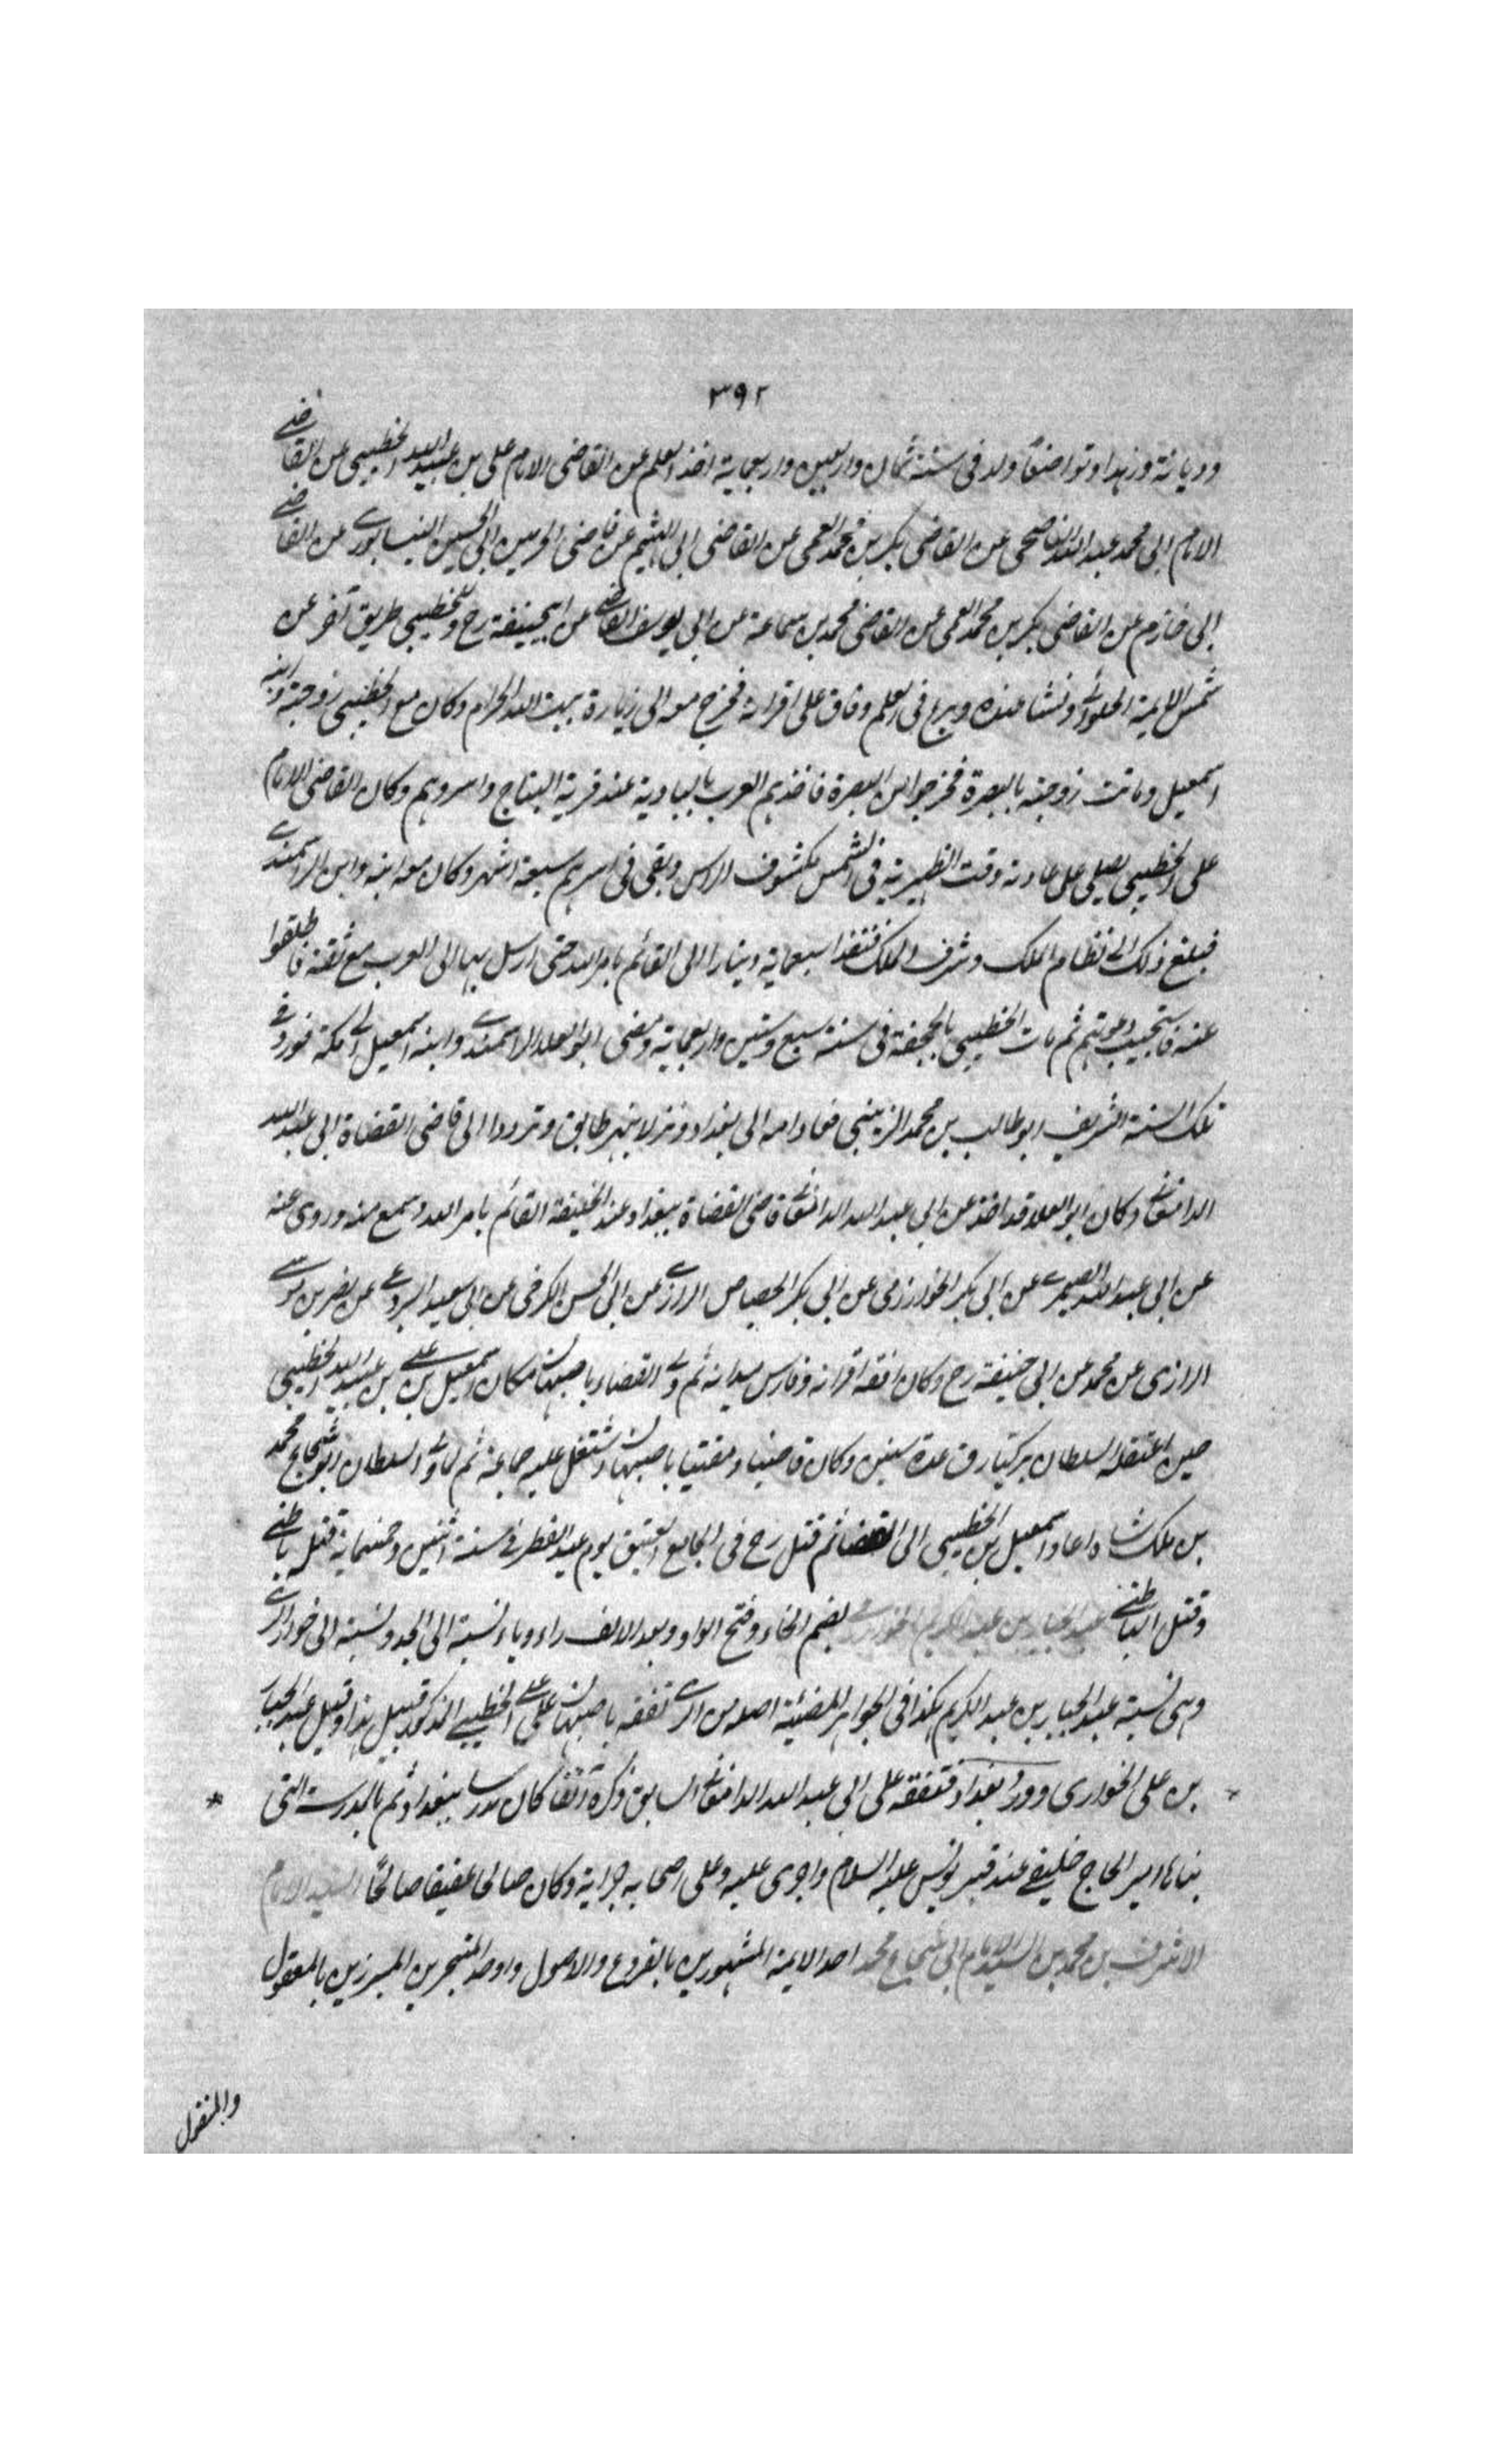 ٣٩٢
وديانة وزهدا وتواضعا ولد فى سنة ثمان واربعين واربعماية اخذ العلم عن القاضى الامام على بن عبيد الله الخطيبى عن القاضى
الامام ابى محمد عبد الله الناصحى عن القاضى بكر بن محمد العمى عن القاضى ابى الهيثم عن قاضى الحرمين ابى الحسين النيسابورى عن القاضى
ابى خازم عن القاضى بكر بن محمد العمى عن القاضى محمد بن سماعة عن ابى يوسف القاضى عن ابيحنيفة رح وللخطيبى طريق آخر عن
شمس الايمة الحلوائى ونشا عنده وبرع فى العلم وفاق على اقرانه فخرج معه الى زيارة بيت الله الحرام وكان مع الخطيبى زوجته وابنه
اسمعيل وماتت زوجته بالبصرة فخرجوا من البصرة فاخذهم العرب بالبادية عند قرية النباج واسروهم وكان القاضى الامام
على الخطيبى يصلى على عادته وقت الظهيرية فى الشمس مكشوف الراس وبقى فى اسرهم سبعة اشهر وكان معه ابنه وابن الراسمندى
فبلغ ذلك الى نظام الملك وشرف الملك فنفذا سبعماية دينارا الى القائم بامر الله حتى ارسل بها الى العرب مع ثقة فاطلقوا
عنه فاستجيب دعوتهم ثم مات الخطيبى بالجحفة فى سنة سبع وستين واربعماية ومضى ابو العلا الاسمندى وابنه اسمعيل الى مكة فورد فى
تلك السنة الشريف ابو طالب بن محمد الزينبى فعادا معه الى بغداد ونزلا بنهر طابق وترددا الى قاضى القضاة ابى عبد الله
الدامغانى وكان ابو العلا قد اخذ عن ابى عبد الله الدامغانى قاضى القضاة ببغداد عند الخليفة القائم بامر الله وسمع منه وروى عنه
عن ابى عبد الله الصيمرى عن ابى بكر الخوارزمى عن ابى بكر الجصاص الرازى عن ابى الحسن الكرخى عن ابى سعيد البردعى عن نصر بن موسى
الرازى عن محمد عن ابى حنيفة رح وكان افقه اقرانه وفارس ميدانه ثم ولى القضاء باصبهان مكان اسمعيل بن على بن عبيد الله الخطيبى
حين اعتقله السلطان بركيارق عدة سنين وكان قاضيا ومفتيا باصبهان واشتغل عليه جماعة ثم لما ولى السلطان ابو شجاع محمد
بن ملك شاه اعاد اسمعيل بن الخطيبى الى القضا ثم قتل رح فى الجامع العتيق يوم عيد الفطر فى سنة اثنين وخمسماية قتله باطنى
وقتل الباطنى عبد الجبار بن عبد الكريم الخوارى بضم الخاء وفتح الواو وبعد الالف راء وياء نسبة الى الجد ونسبة الى خوار الرى
وهى نسبة عبد الجبار بن عبد الكريم هكذا فى الجواهر المضيئة اصله من الرى تفقه باصبهان على على الخطيبى المذكور قبيل هذا وقيل عبد الجبار
بن على الخوارى وورد بغداد فتفقه على ابى عبد الله الدامغانى السابق ذكره آنفا كان مدرسا ببغداد ثم بالمدرسة التى
بناها امير الحاج خليفى عند قبر يونس عليه السلام واجرى عليه وعلى اصحابه جراية وكان صالحا عفيفا صالحا السيد الامام
الاشرف بن محمد بن السيد الامام ابى شجاع محمد احد الايمة المشهورين بالفروع والاصول واوحد المتبحرين المبرزين بالمعقول
والمنقول